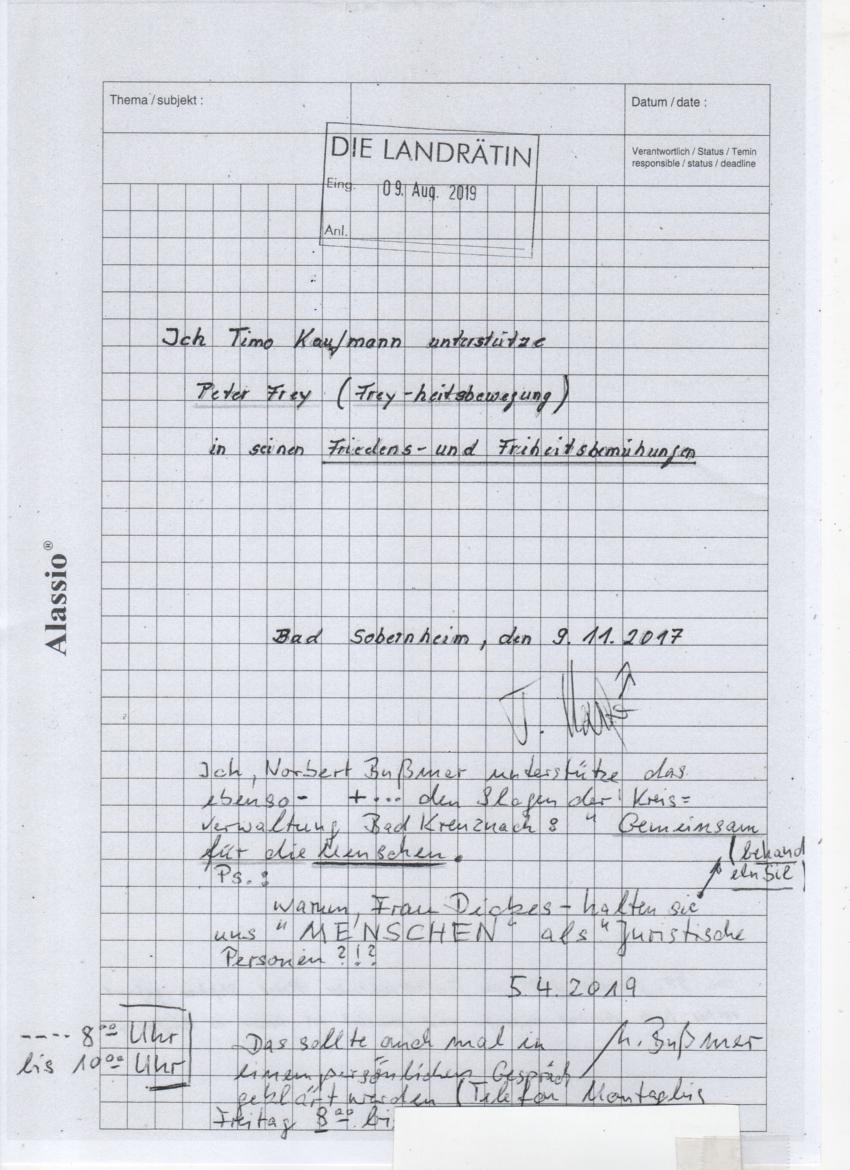 Thema / subjekt :
Datum / date :
Verantwortlich / Status / Temin
responsible / status / deadline
DIE LANDRÄTIN
Eing. 09. Aug. 2019
Anl.
Ich Timo Kaufmann unterstütze
Peter Frey (Frey-heitsbewegung)
in seinen Friedens- und Friheitsbemühungen
Alassio®
Bad Sobernheim, den 9.11.2017
Ich, Norbert Bußmer unterstütze das
ebenso - +... den Slogen der Kreis=
verwaltung Bad Kreuznach : " Gemeinsam
für die Menschen.
(behand
eln Sie)
Ps.:
Warum, Frau Dickes - halten sie
uns "MENSCHEN" als "Juristische
Personen ?!?
5.4.2019
---- 8°° Uhr
bis 10°° Uhr
Das sollte auch mal in
N. Bußmer
einem persönlichen Gespräch
geklärt werden (Telefon Montag bis
Freitag 8°° bi